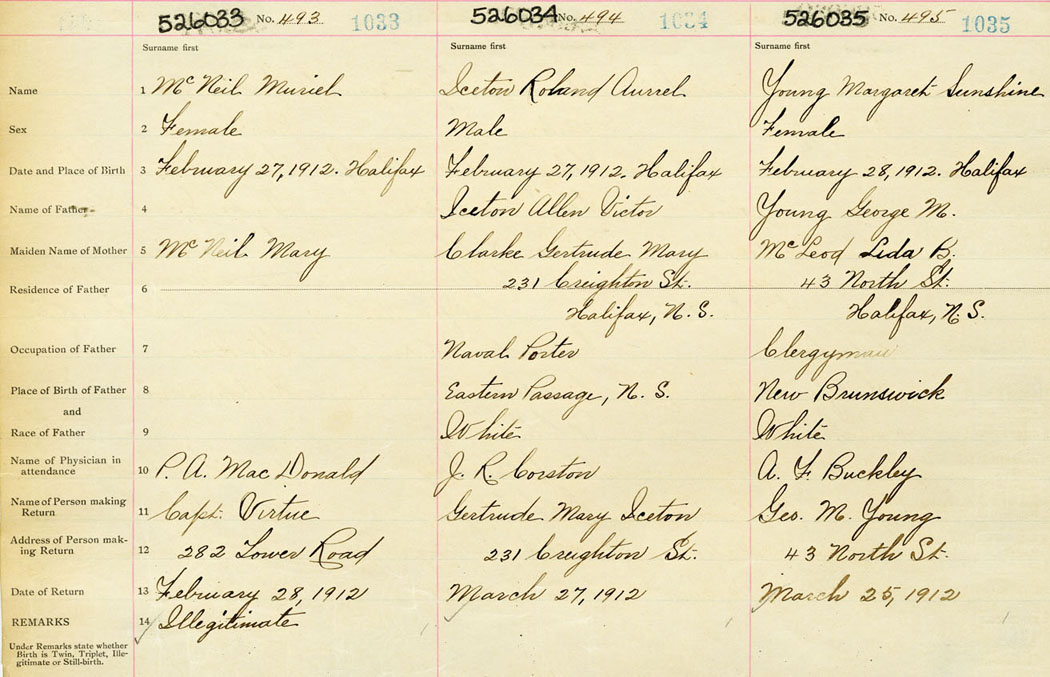 526033 No. 493 1033 526034 No. 494 1034 526035 No. 495 1035
Surname first Surname first Surname first
Name 1 McNeil Muriel Iceton Roland Aurrel Young Margaret Sunshine
Sex 2 Female Male Female
Date and Place of Birth 3 February 27, 1912. Halifax February 27, 1912. Halifax February 28, 1912. Halifax
Name of Father 4 Iceton Allen Victor Young George M.
Maiden Name of Mother 5 McNeil Mary Clarke Gertrude Mary McLeod Lida B.
Residence of Father 6 231 Creighton St. 43 North St.
Halifax, N. S. Halifax, N. S.
Occupation of Father 7 Naval Porter Clergyman
Place of Birth of Father 8 Eastern Passage, N. S. New Brunswick
and
Race of Father 9 White White
Name of Physician in
attendance 10 P. A. MacDonald J. R. Corston A. F. Buckley
Name of Person making
Return 11 Capt. Virtue Gertrude Mary Iceton Geo. M. Young
Address of Person mak-
ing Return 12 282 Lower Road 231 Creighton St. 43 North St.
Date of Return 13 February 28, 1912 March 27, 1912 March 25, 1912
REMARKS 14 Illegitimate
Under Remarks state whether
Birth is Twin, Triplet, Ille-
gitimate or Still-birth.